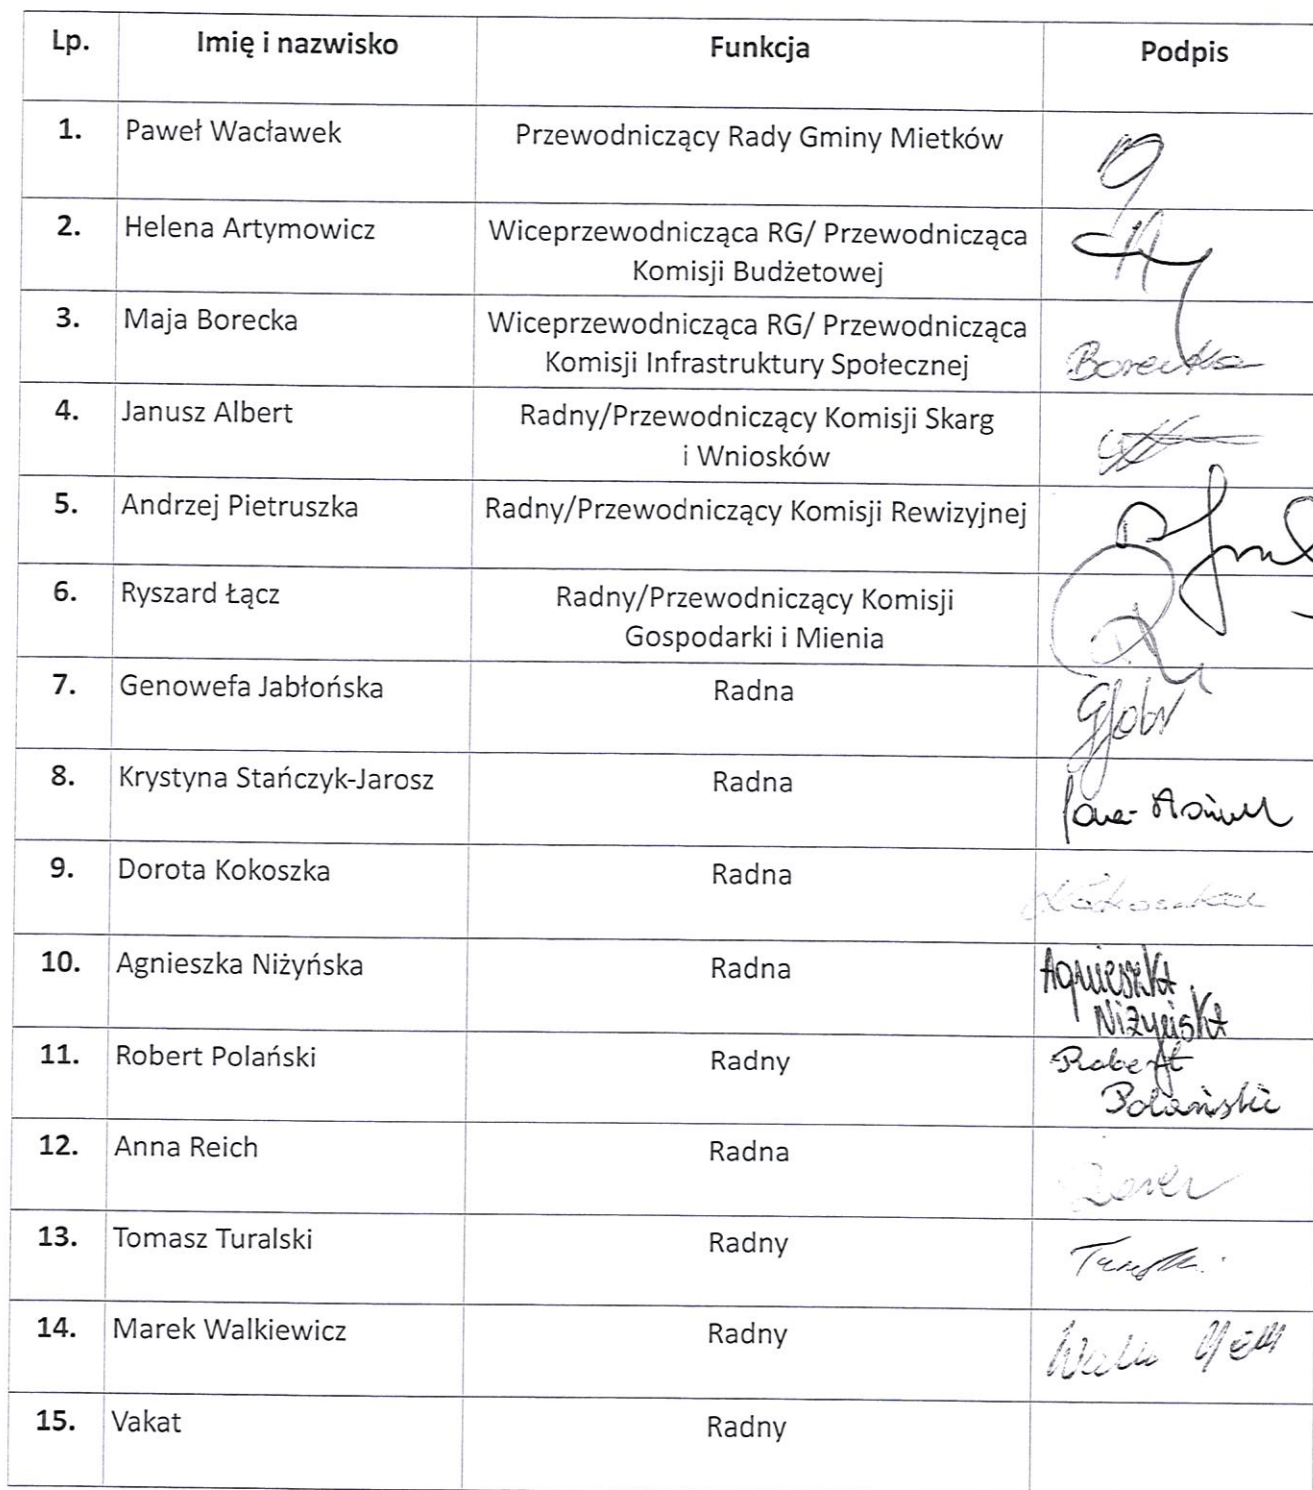 Lp. Imię i nazwisko Funkcja Podpis
1. Paweł Wacławek Przewodniczący Rady Gminy Mietków
2. Helena Artymowicz Wiceprzewodnicząca RG/ Przewodnicząca
Komisji Budżetowej
3. Maja Borecka Wiceprzewodnicząca RG/ Przewodnicząca
Komisji Infrastruktury Społecznej Borecka
4. Janusz Albert Radny/Przewodniczący Komisji Skarg
i Wniosków
5. Andrzej Pietruszka Radny/Przewodniczący Komisji Rewizyjnej
6. Ryszard Łącz Radny/Przewodniczący Komisji
Gospodarki i Mienia
7. Genowefa Jabłońska Radna
8. Krystyna Stańczyk-Jarosz Radna
9. Dorota Kokoszka Radna
10. Agnieszka Niżyńska Radna Agnieszka
Niżyńska
11. Robert Polański Radny Robert
Polański
12. Anna Reich Radna
13. Tomasz Turalski Radny
14. Marek Walkiewicz Radny
15. Vakat Radny